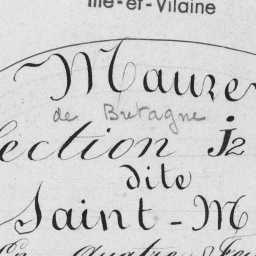 Ille-et-Vilaine
Maure
de Bretagne
Section J2
dite
Saint-M
En quatre Feu